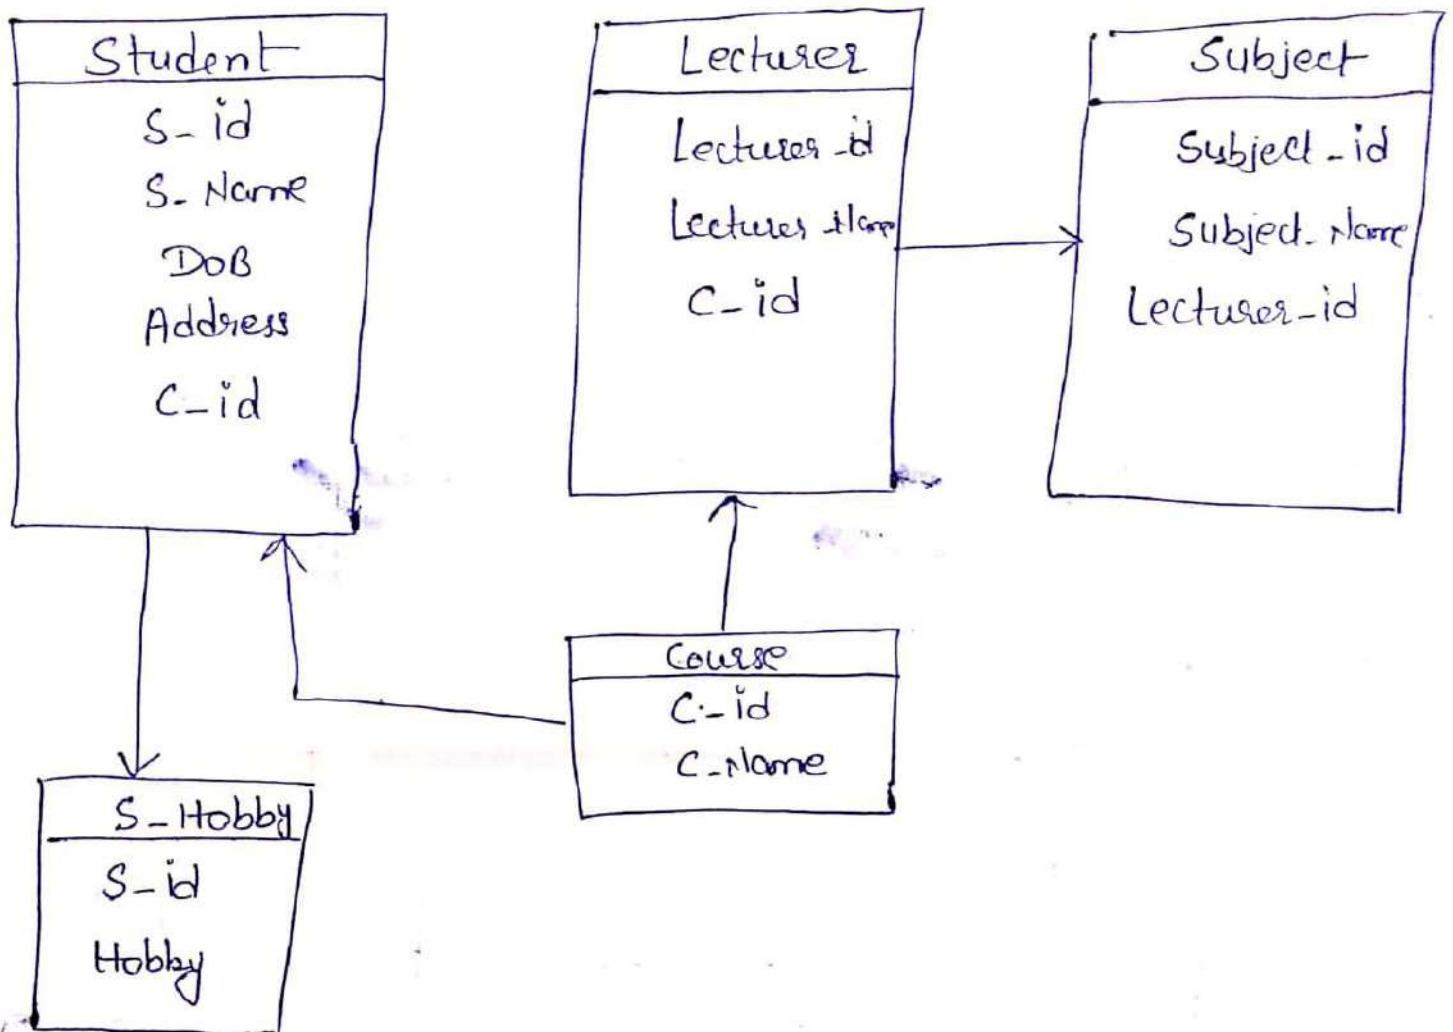 Student
S_id
S_Name
DoB
Address
C_id
Lecturer
Lecturer_id
Lecturer_Name
C_id
Subject
Subject_id
Subject_Name
Lecturer_id
Course
C_id
C_Name
S_Hobby
S_id
Hobby